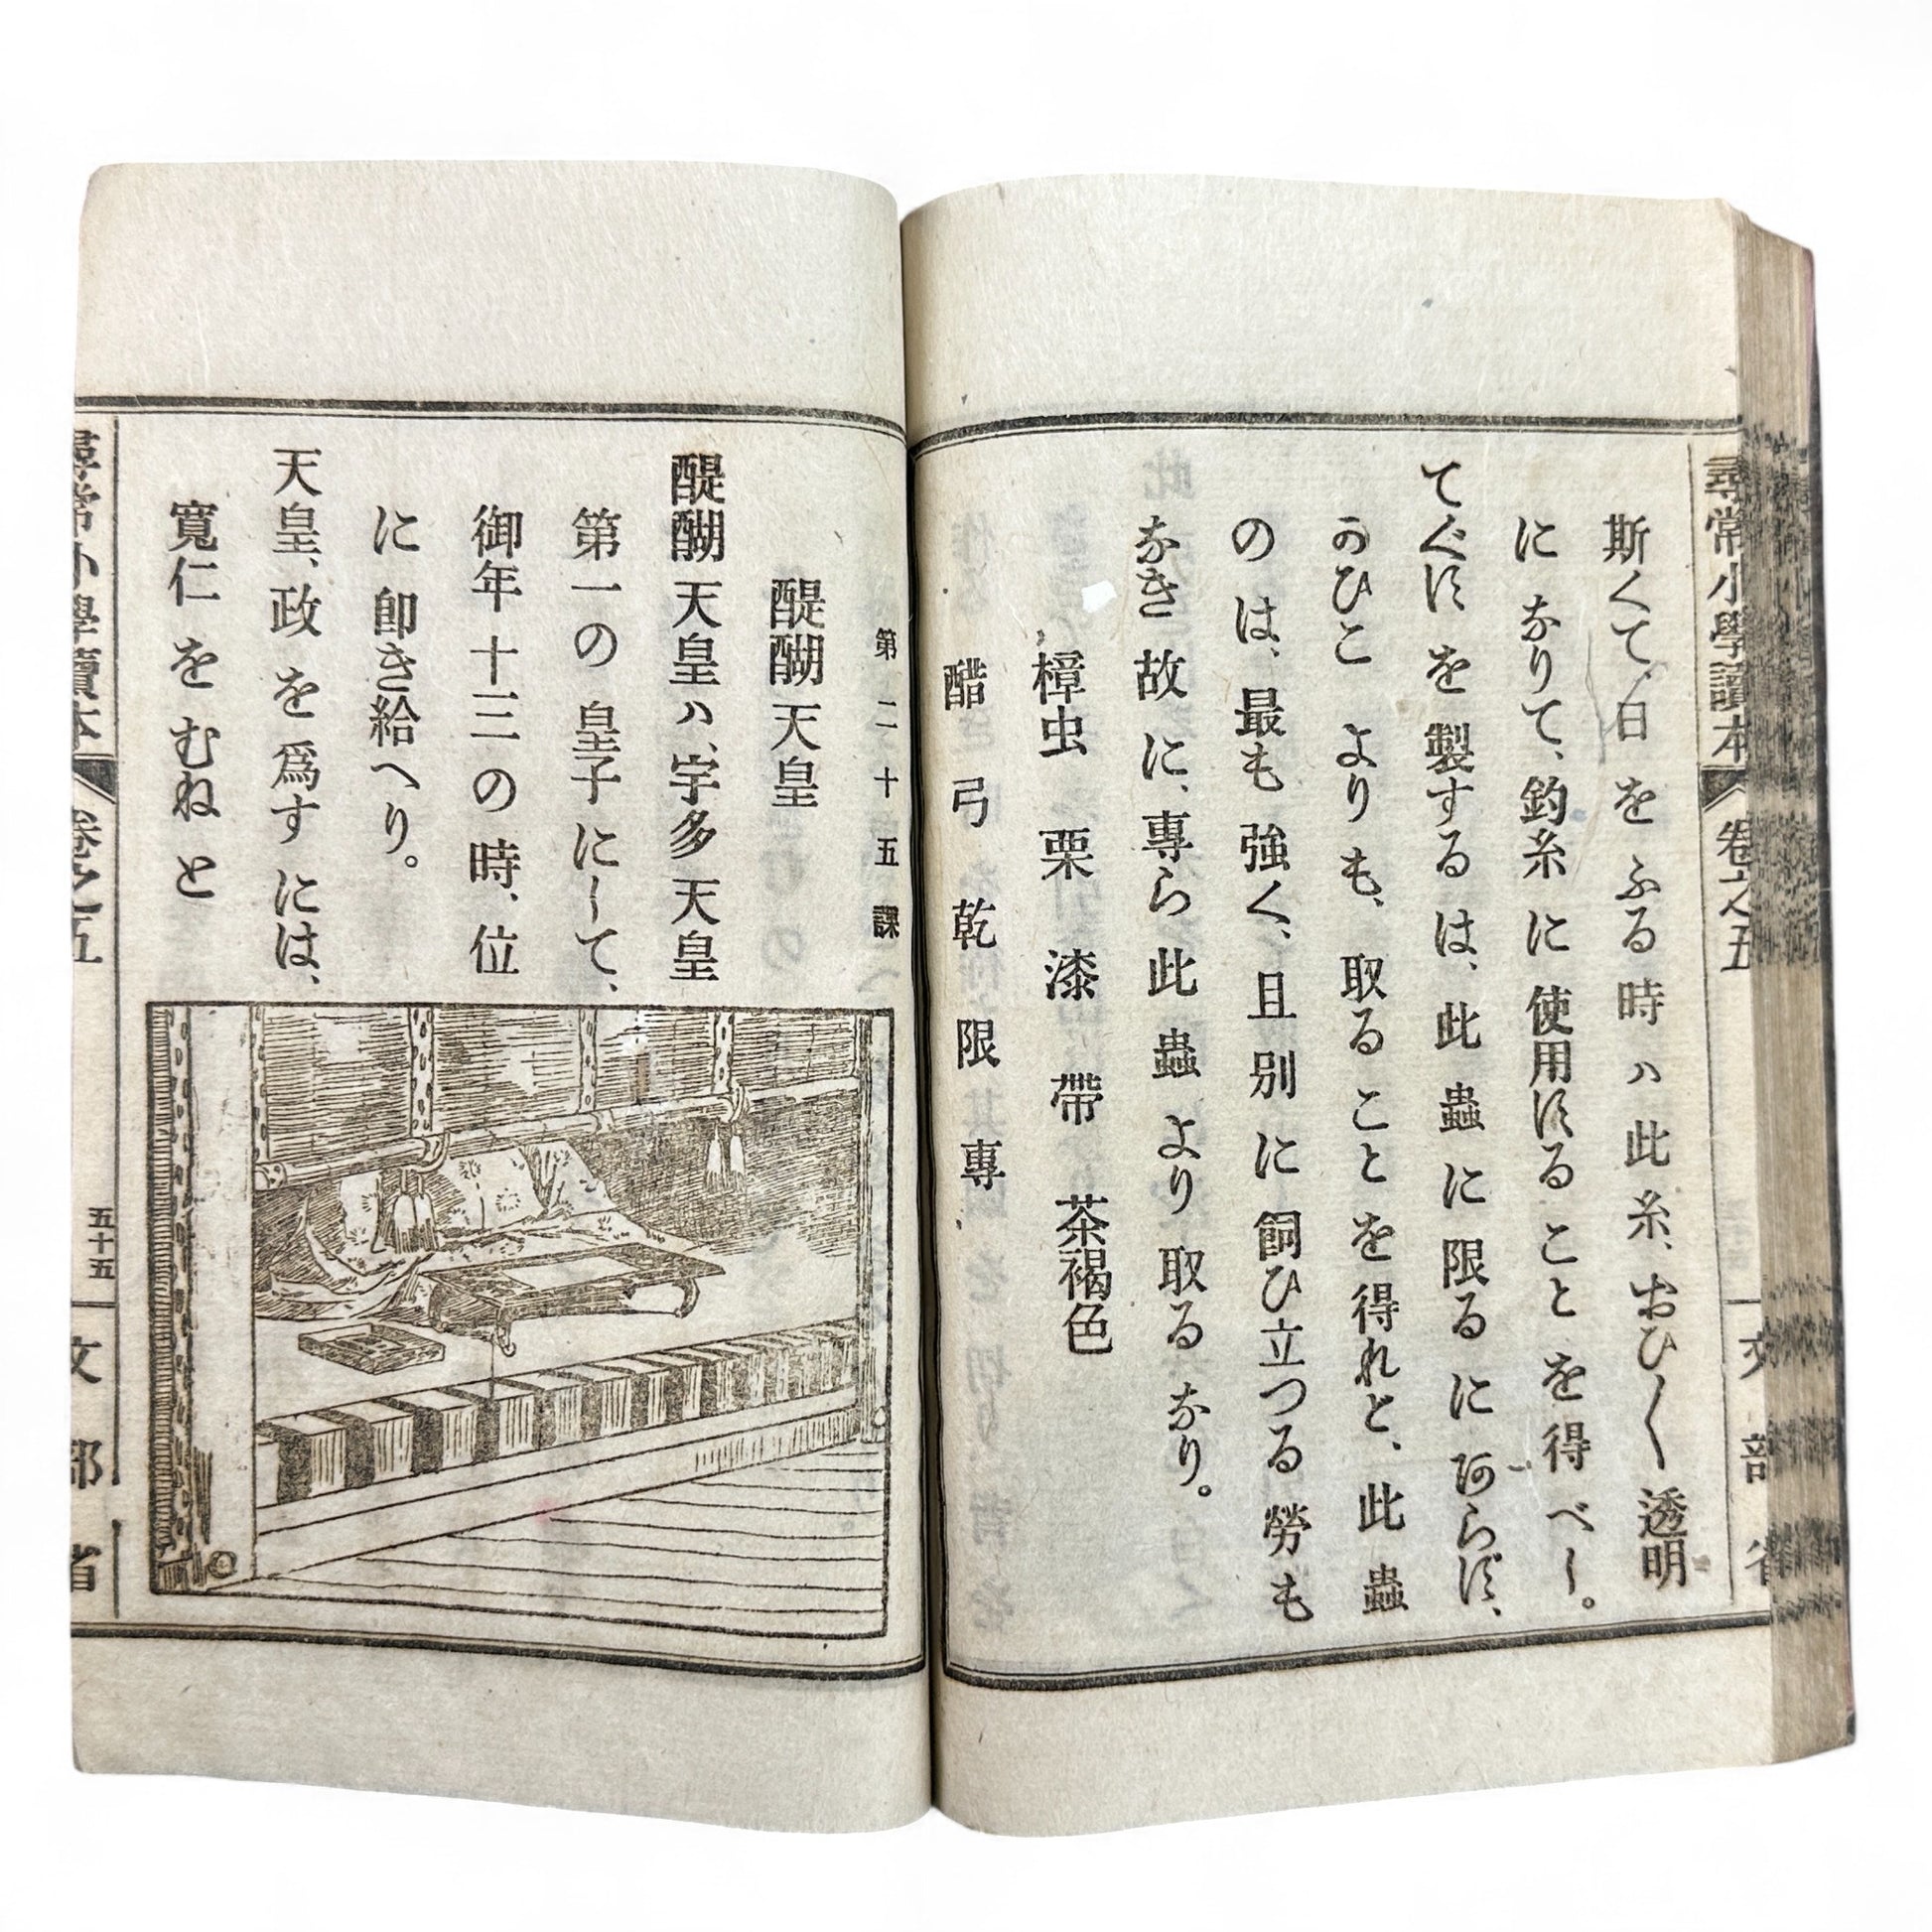 尋常小學讀本 卷之五
文部省
斯くて、日 を ふる 時ハ 此 糸、おひ〳〵 透明
に なりて、釣糸 に 使用する こと を 得 べし。
てぐす を 製する は、此 蟲 に 限る に あらず、
かひこ よりも、取る こと を 得れど、此 蟲
のは、最も 強く、且 別 に 飼ひ 立つる 勞も
なき 故 に、專ら 此 蟲 より 取る なり。
樟虫 栗 漆 帶 茶褐色
醋 弓 乾 限 專
第二十五課
醍醐天皇
醍醐 天皇ハ、宇多 天皇
第一の 皇子 にして、
御年 十三 の 時、位
に 卽き給へり。
天皇、政 を 爲す には、
寬仁 を むね と
尋常小學讀本 卷之五
五十五
文部省